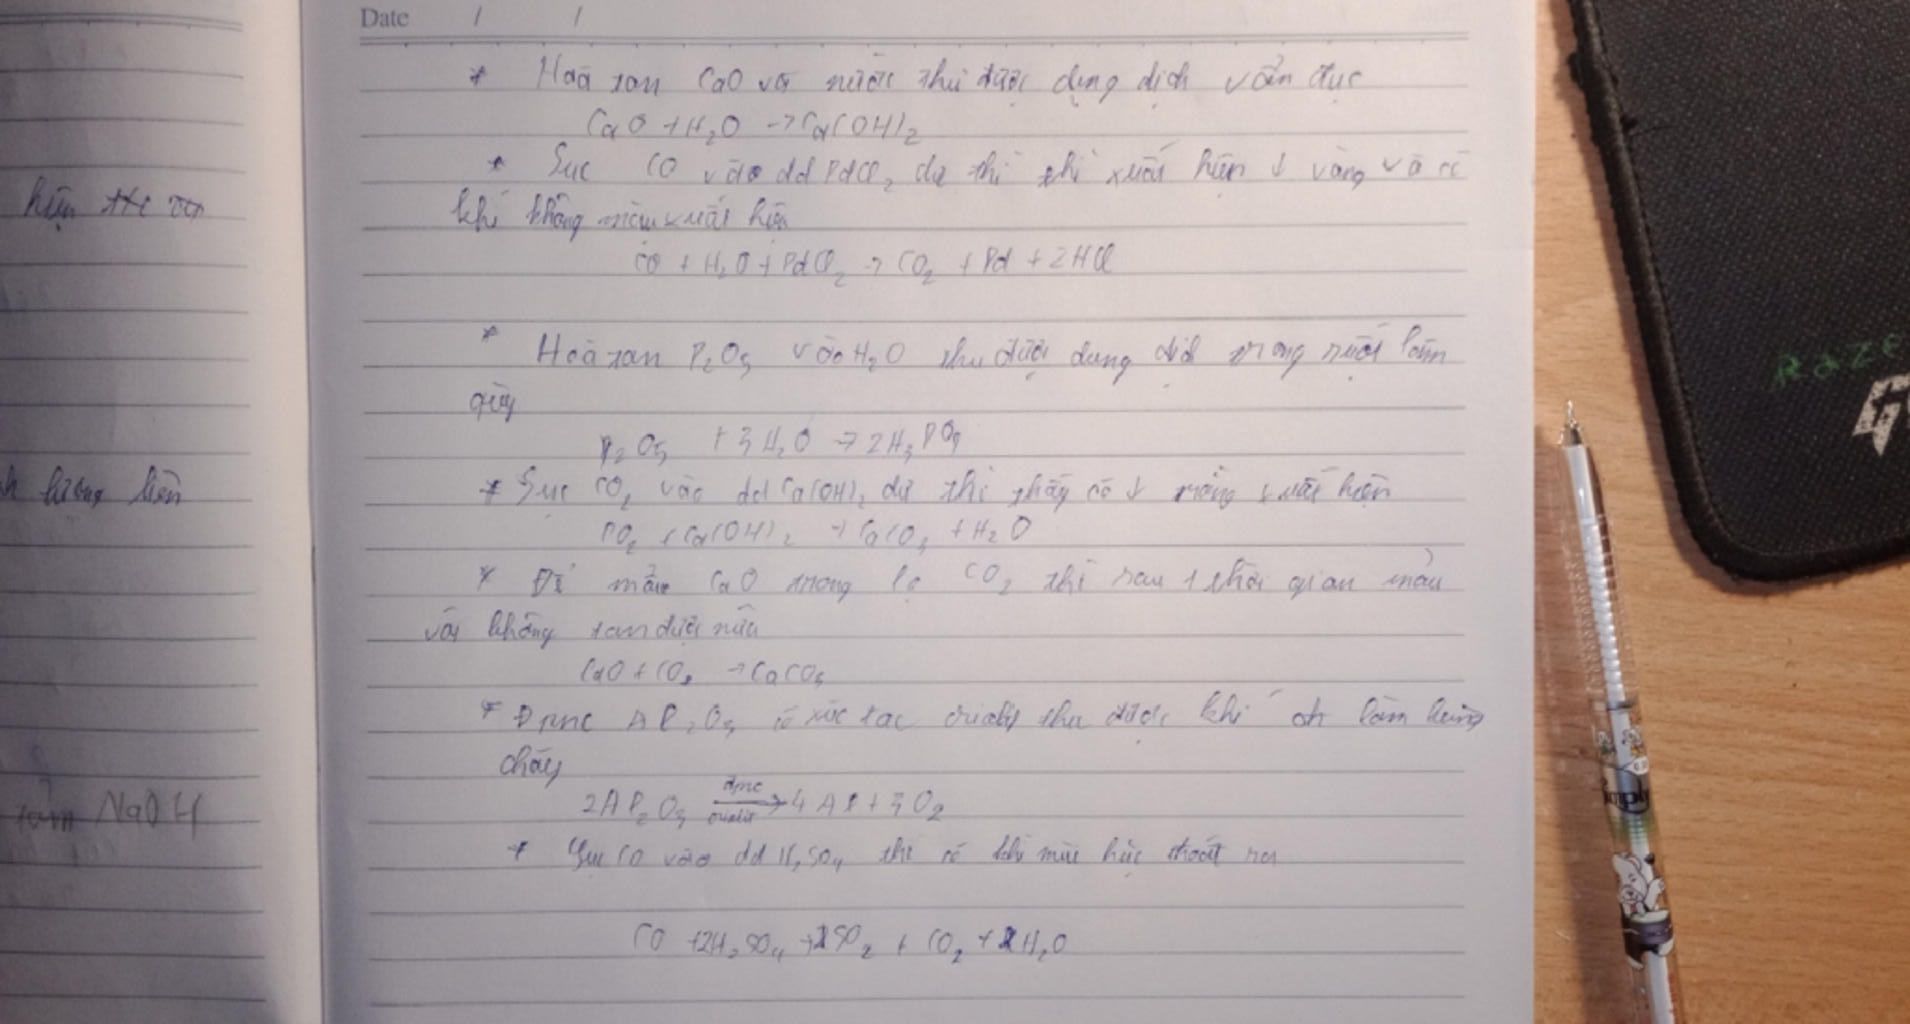 Date / /
* Hoà tan CaO và nước thu được dung dịch vẩn đục
CaO + H₂O → Ca(OH)₂
* Sục CO vào dd PdCl₂ dư thì thì xuất hiện ↓ vàng và có
hiện
khí không màu xuất hiện
CO + H₂O + PdCl₂ → CO₂ + Pd + 2HCl
* Hoà tan P₂O₅ vào H₂O thu được dung dịch trong suốt làm
giấy
P₂O₅ + 3H₂O → 2H₃PO₄
* Sục CO₂ vào dd Ca(OH)₂ dư thì thấy có ↓ trắng xuất hiện
lượng liên
CO₂ + Ca(OH)₂ → CaCO₃ + H₂O
* Để mẩu CaO trong lọ CO₂ thì sau 1 thời gian mẩu
vôi không tan được nữa
CaO + CO₂ → CaCO₃
* Đpnc Al₂O₃ có xúc tác criolit thu được khí làm bùng
cháy
2Al₂O₃ đpnc criolit → 4Al + 3O₂
NaOH
* Sục CO vào dd H₂SO₄ thì có khí mùi hắc thoát ra
CO + 2H₂SO₄ → SO₂ + CO₂ + H₂O
RAZE